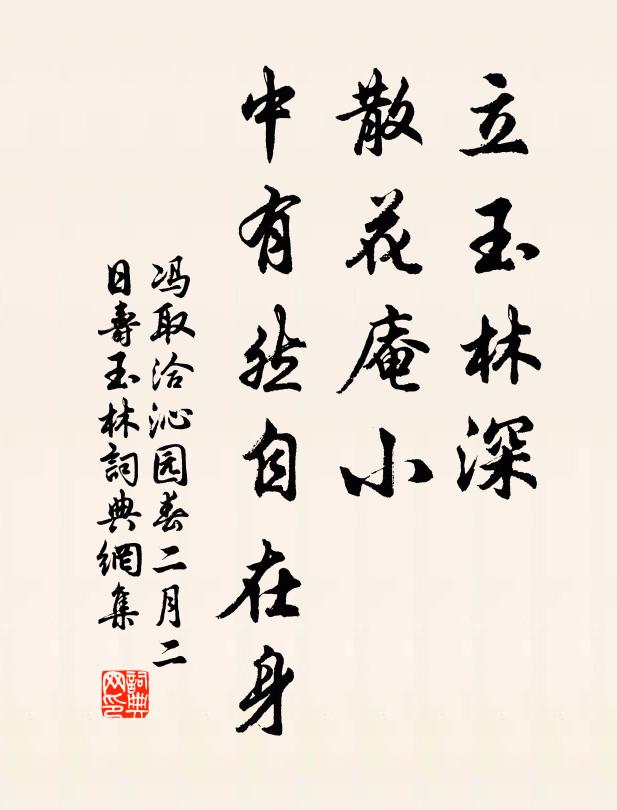 立玉林深
散花庵小
中有然自在身
冯取洽沁园春二月二
日寿玉林詞典網集
詞典
网印